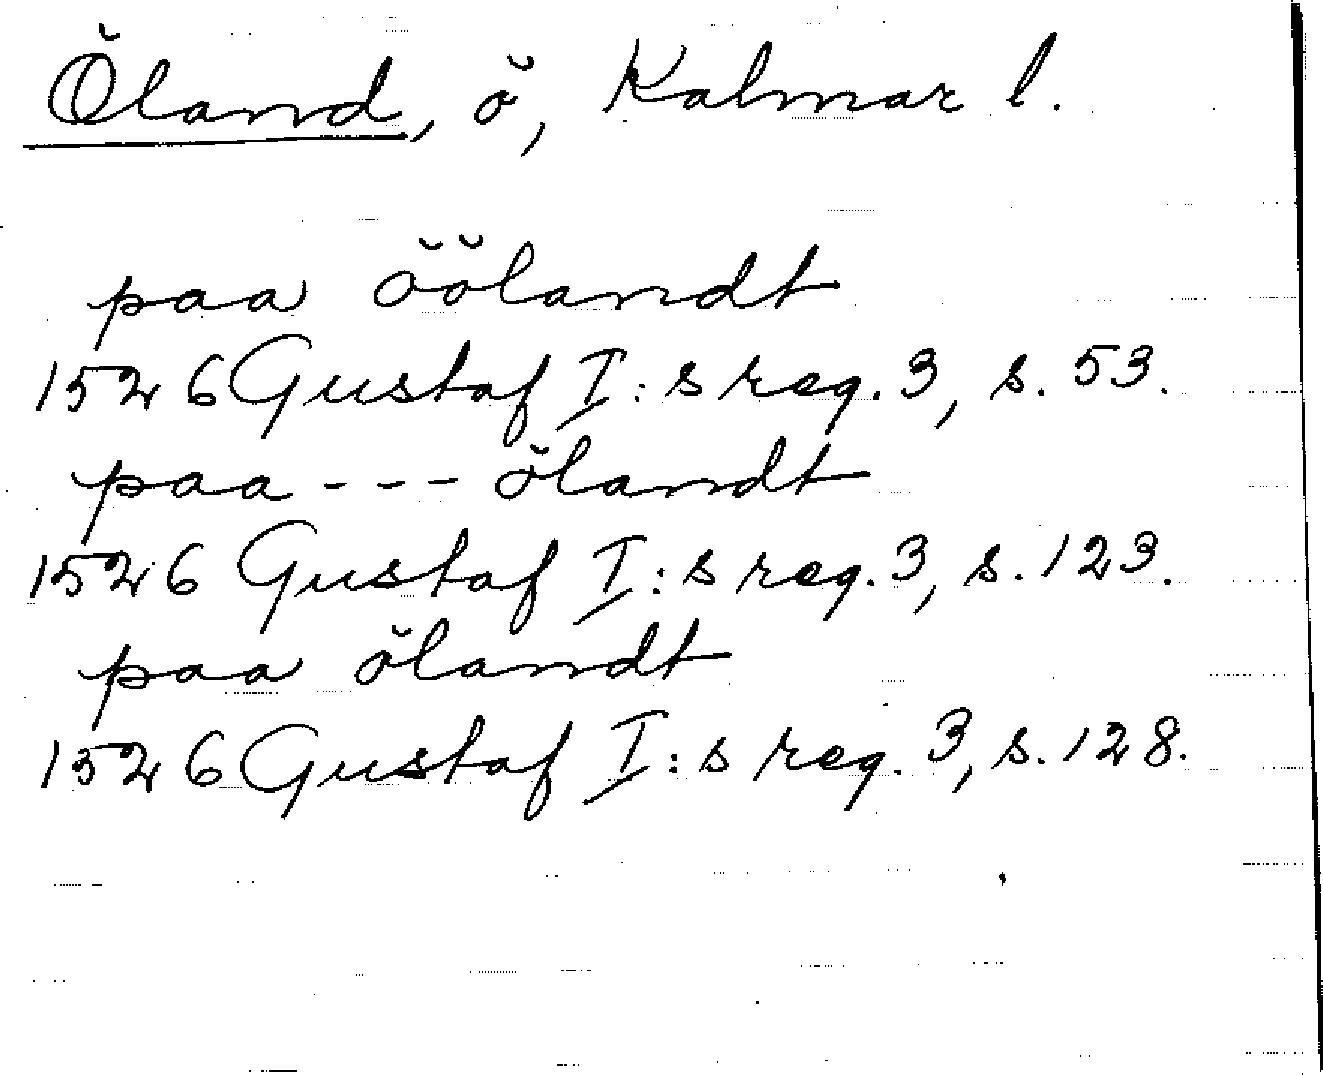 Öland, ö, Kalmar l.
paa öölandt
1526 Gustaf I:s reg. 3, s. 53.
paa --- ölandt
1526 Gustaf I:s reg. 3, s. 123.
paa ölandt
1526 Gustaf I:s reg. 3, s. 128.